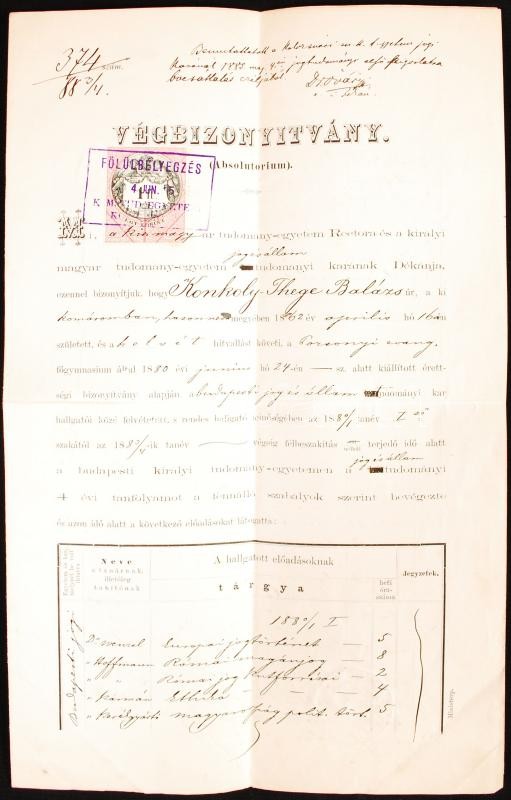 374 szám.
88 3/4
Bemutattatott a Kolozsvári m. k. t. egyetem jogi
karánál 1885 máj. 4én jogtudományi első szigorlatra
bocsáttatás céljából.
VÉGBIZONYITVÁNY.
(Absolutorium).
FÖLÜLBÉLYEGZÉS
4 JUN.
Mi, a kir. magyar tudomány-egyetem Rectora és a királyi
jog és állam
magyar tudomány-egyetem tudományi karának Dékánja,
ezennel bizonyítjuk, hogy Konkoly-Thege Balázs úr, a ki
Komáromban, hasonnevű megyében 1862 év április hó 16án
született, és a helvét hitvallást követi, a Pozsonyi evang.
főgymnasium által 1880 évi junius hó 24-én — sz. alatt kiállított érett-
ségi bizonyítvány alapján, a budapesti jog és állam tudományi kar
hallgatói közé felvétetett, s rendes hallgató minőségében az 1880/1 tanév I ső
szakától az 188 /4 ik tanév — végéig félbeszakítás nélkül terjedő idő alatt
jog és állam
a budapesti királyi tudomány-egyetemen a tudományi
4 évi tanfolyamot a fennálló szabályok szerint bevégezte
és azon idő alatt a következő előadásokat látogatta:
Neve
a tanárnak,
illetőleg
tanítónak
A hallgatott előadásoknak
tárgya
heti
óra-
száma
Jegyzetek.
Budapesti jogi
1880/1 I
Dr Wenzel Europai jogtörténet — 5
„ Hoffmann Római magánjog — 8
„ „ Római jog kútforrásai — 2
„ Kármán Ethika — 4
„ Kerékgyártó Magyarország polit. tört. 5